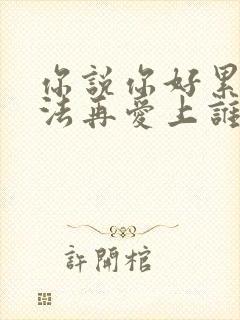 你說你好累
法再愛上誰
許開棺